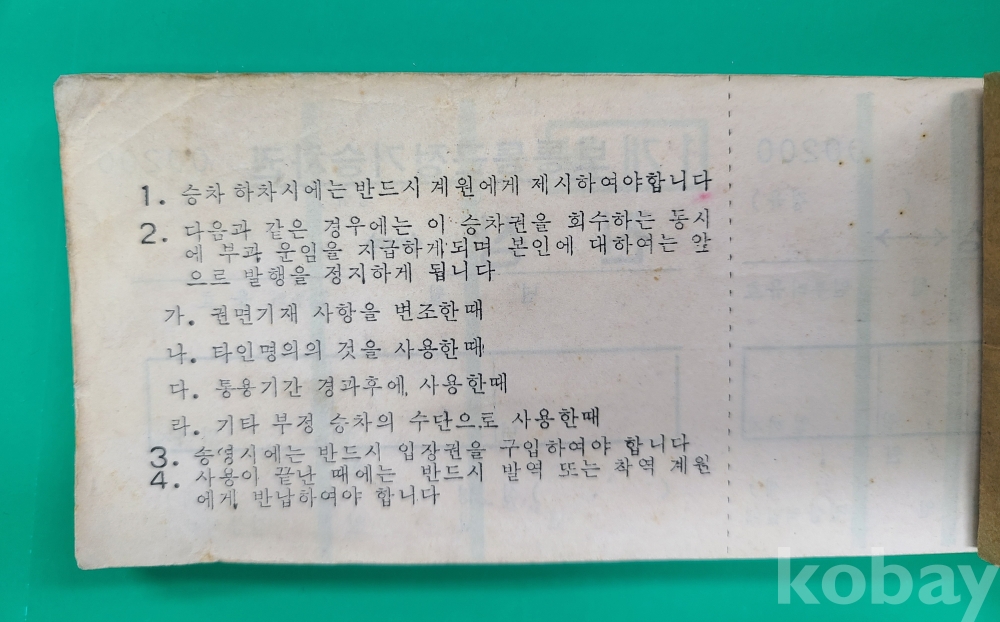 1. 승차 하차시에는 반드시 계원에게 제시하여야합니다
2. 다음과 같은 경우에는 이 승차권을 회수하는 동시
에 부과 운임을 지급하게되며 본인에 대하여는 앞
으로 발행을 정지하게 됩니다
가. 권면기재 사항을 변조한때
나. 타인명의의 것을 사용한때
다. 통용기간 경과후에 사용한때
라. 기타 부정 승차의 수단으로 사용한때
3. 송영시에는 반드시 입장권을 구입하여야 합니다
4. 사용이 끝난 때에는 반드시 발역 또는 착역 계원
에게 반납하여야 합니다
kobay